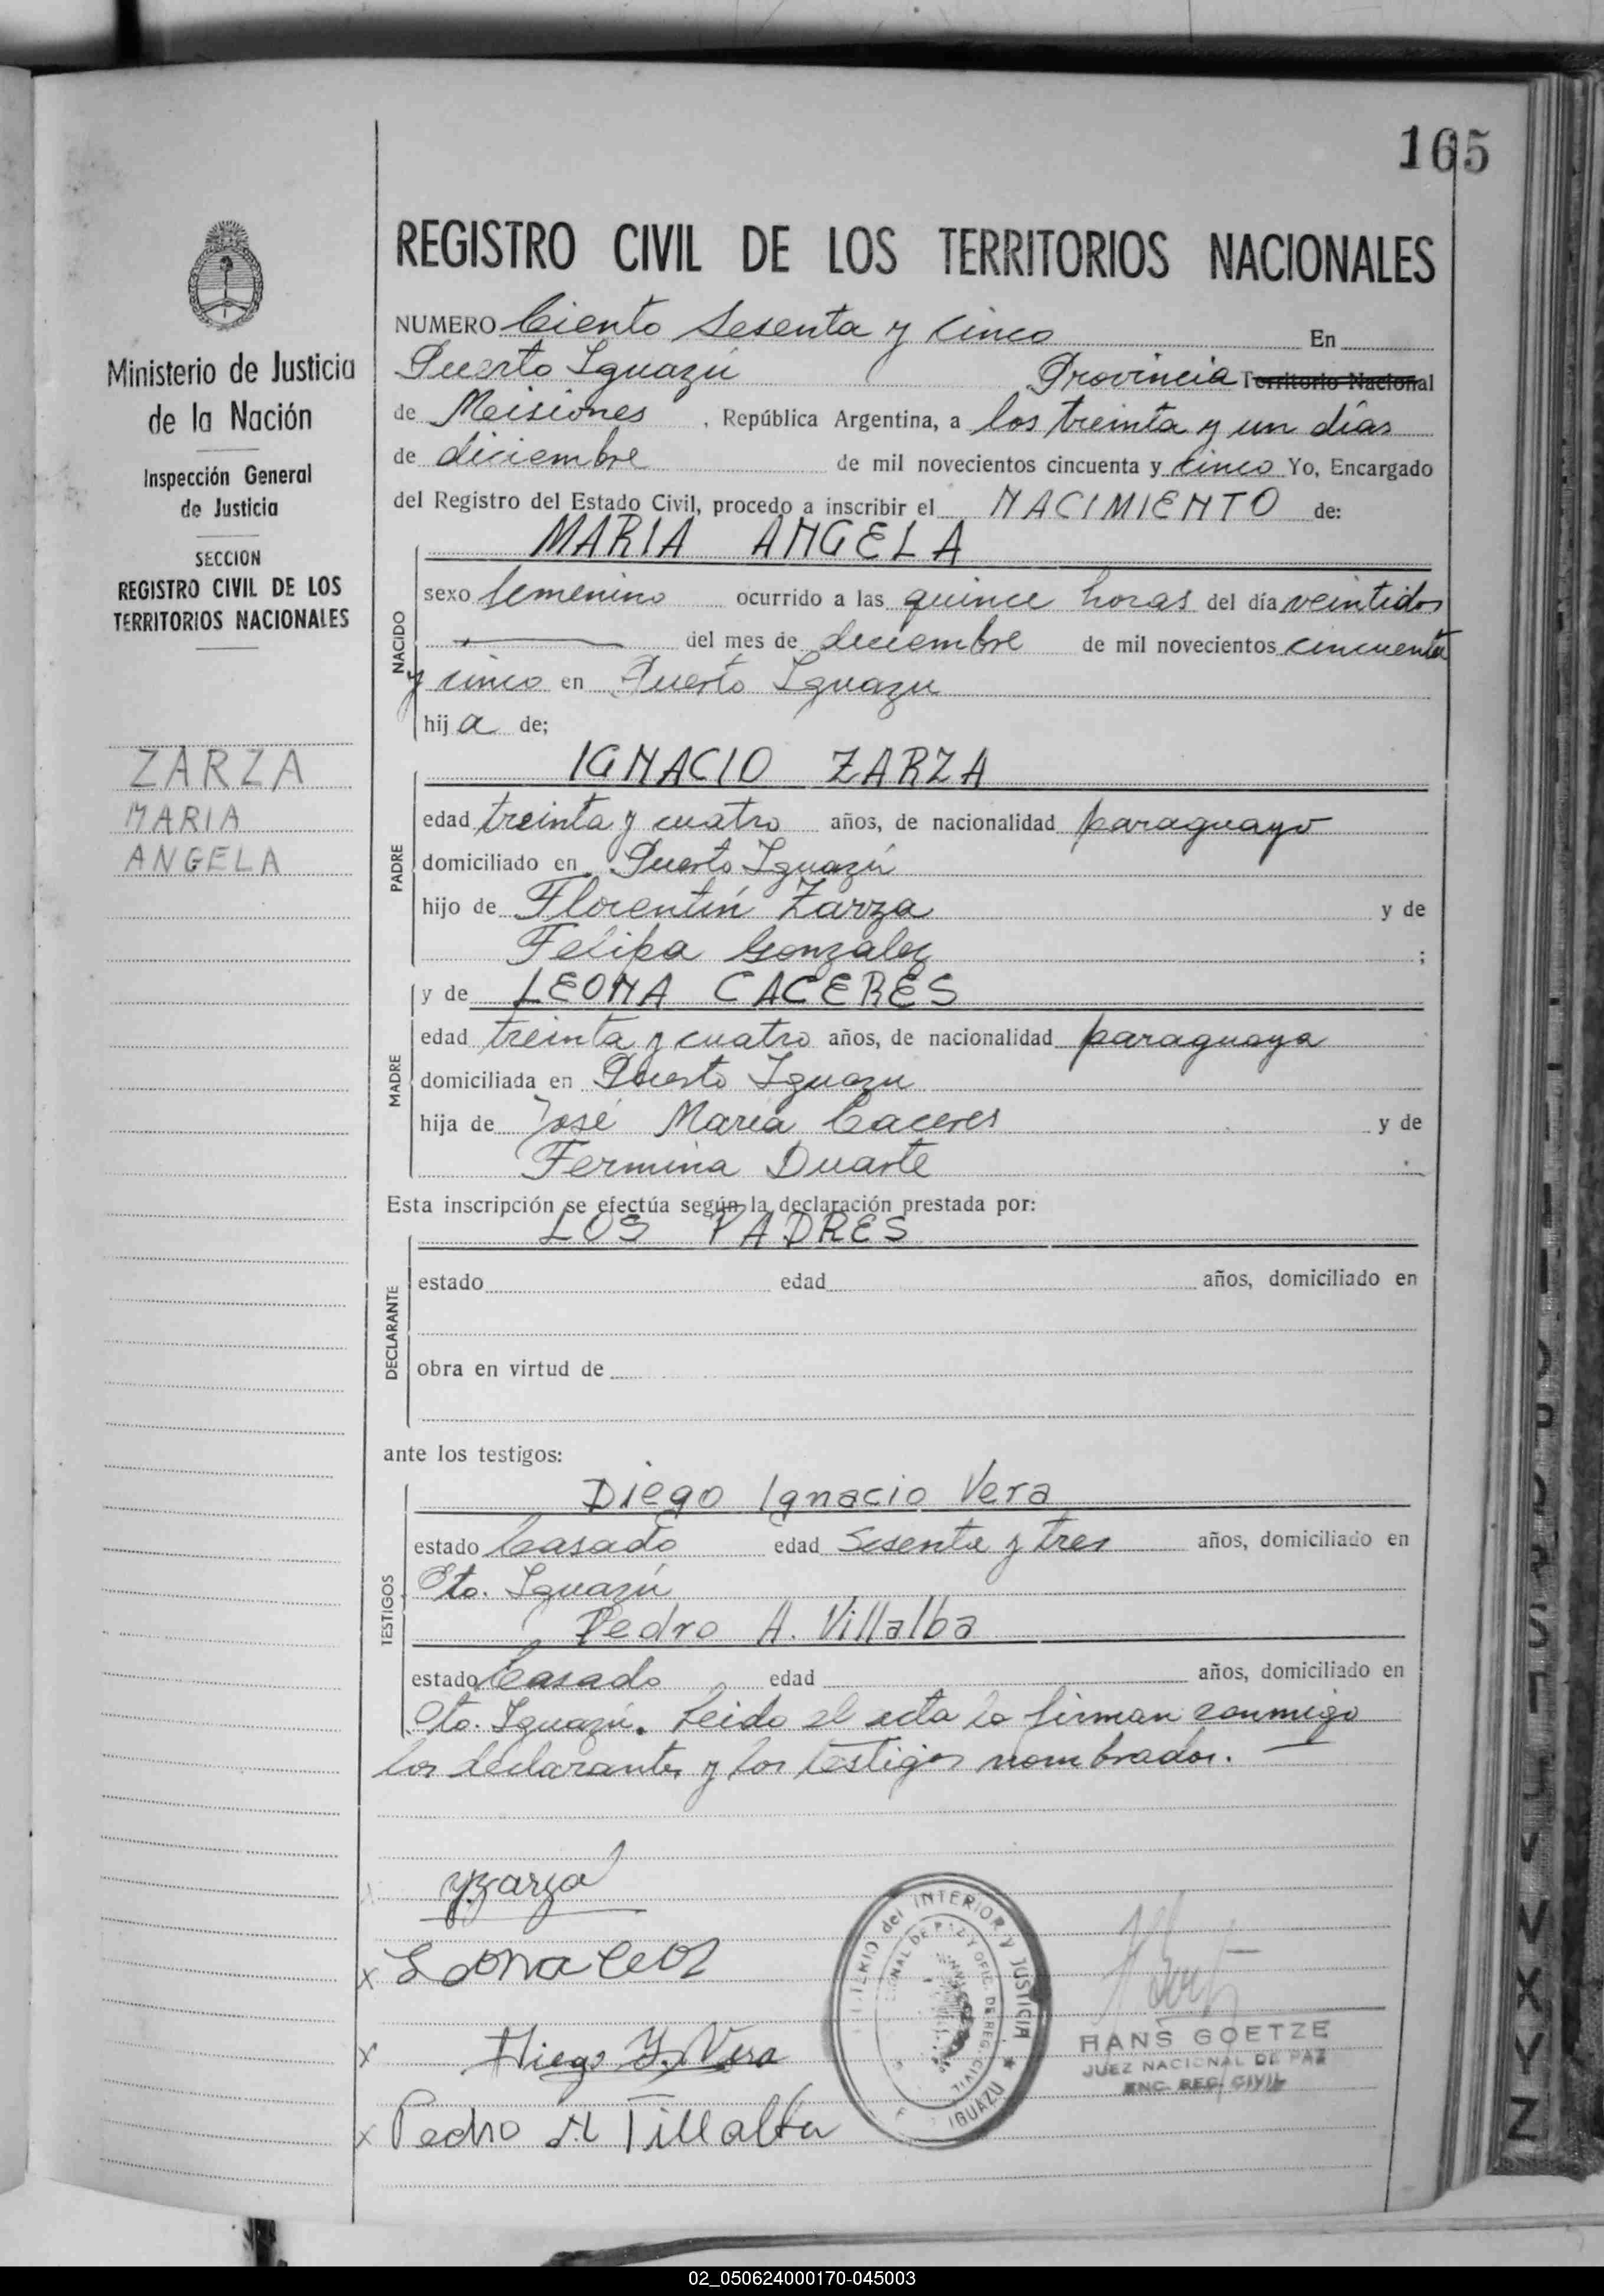 165
Ministerio de Justicia
de la Nación
Inspección General
de Justicia
SECCION
REGISTRO CIVIL DE LOS
TERRITORIOS NACIONALES
ZARZA
MARIA
ANGELA
REGISTRO CIVIL DE LOS TERRITORIOS NACIONALES
NUMERO Ciento Sesenta y cinco En
Puerto Iguazú Provincia Territorio Nacional
de Misiones, República Argentina, a los treinta y un días
de diciembre de mil novecientos cincuenta y cinco Yo, Encargado
del Registro del Estado Civil, procedo a inscribir el NACIMIENTO de:
MARIA ANGELA
NACIDO
sexo femenino ocurrido a las quince horas del día veintidos
del mes de diciembre de mil novecientos cincuenta
y cinco en Puerto Iguazu
hija de;
IGNACIO ZARZA
PADRE
edad treinta y cuatro años, de nacionalidad paraguayo
domiciliado en Puerto Iguazú
hijo de Florentín Zarza y de
Felipa Gonzalez ;
y de LEONA CACERES
MADRE
edad treinta y cuatro años, de nacionalidad paraguaya
domiciliada en Puerto Iguazu
hija de José María Caceres y de
Fermina Duarte
Esta inscripción se efectúa según la declaración prestada por:
LOS PADRES
DECLARANTE
estado edad años, domiciliado en
obra en virtud de
ante los testigos:
Diego Ignacio Vera
TESTIGOS
estado Casado edad Sesenta y tres años, domiciliado en
Pto. Iguazú
Pedro A. Villalba
estado Casado edad años, domiciliado en
Pto. Iguazú. Leido el acta la firman conmigo
los declarantes y los testigos nombrados.
Yzarza
x Leona
x Diego Y. Vera
x Pedro A Villalba
INTERIOR y JUSTICIA
DE PAZ Y OFIC. DE REG. CIVIL
IGUAZU
HANS GOETZE
JUEZ NACIONAL DE PAZ
ENC. REG. CIVIL
V
X
Y
Z
02_050624000170-045003